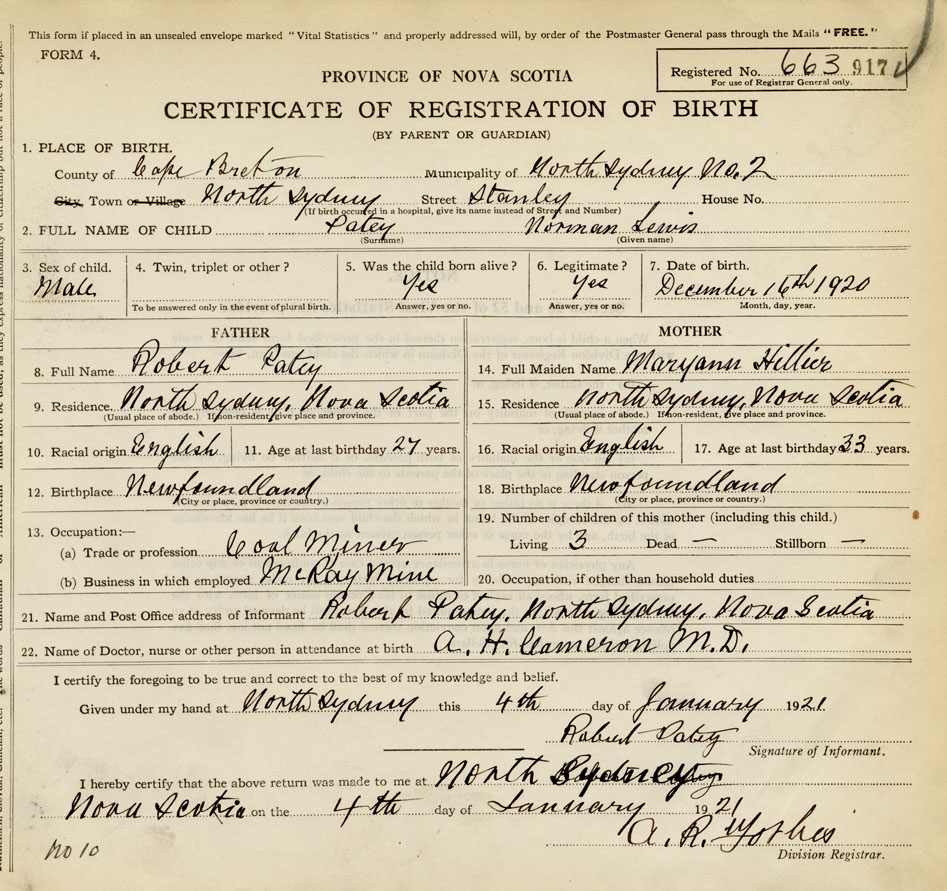 This form if placed in an unsealed envelope marked "Vital Statistics" and properly addressed will, by order of the Postmaster General pass through the Mails "FREE."
FORM 4.
Registered No. 663 917
For use of Registrar General only.
PROVINCE OF NOVA SCOTIA
CERTIFICATE OF REGISTRATION OF BIRTH
(BY PARENT OR GUARDIAN)
1. PLACE OF BIRTH.
County of Cape Breton Municipality of North Sydney No. 2
City, Town or Village North Sydney Street Stanley House No.
(If birth occurred in a hospital, give its name instead of Street and Number)
2. FULL NAME OF CHILD Patey Norman Lewis
(Surname) (Given name)
3. Sex of child. 4. Twin, triplet or other? 5. Was the child born alive? 6. Legitimate? 7. Date of birth.
Male Yes Yes December 16th 1920
To be answered only in the event of plural birth. Answer, yes or no. Answer, yes or no. Month, day, year.
FATHER
8. Full Name Robert Patey
9. Residence. North Sydney, Nova Scotia
(Usual place of abode.) If non-resident, give place and province.
10. Racial origin English 11. Age at last birthday 27 years.
12. Birthplace Newfoundland
(City or place, province or country.)
13. Occupation:—
(a) Trade or profession Coal Miner
(b) Business in which employed McKay Mine
MOTHER
14. Full Maiden Name Maryann Hillier
15. Residence North Sydney, Nova Scotia
(Usual place of abode.) If non-resident, give place and province.
16. Racial origin English 17. Age at last birthday 33 years.
18. Birthplace Newfoundland
(City or place, province or country.)
19. Number of children of this mother (including this child.)
Living 3 Dead — Stillborn —
20. Occupation, if other than household duties
21. Name and Post Office address of Informant Robert Patey, North Sydney, Nova Scotia
22. Name of Doctor, nurse or other person in attendance at birth A. H. Cameron M.D.
I certify the foregoing to be true and correct to the best of my knowledge and belief.
Given under my hand at North Sydney this 4th day of January 1921
Robert Patey
Signature of Informant.
I hereby certify that the above return was made to me at North Sydney
Nova Scotia on the 4th day of January 1921
A. R.
Division Registrar.
No 10